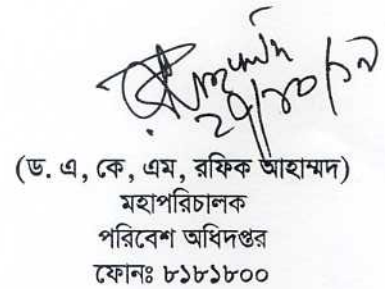 ২৫/১০/১৯
(ড. এ, কে, এম, রফিক আহাম্মদ)
মহাপরিচালক
পরিবেশ অধিদপ্তর
ফোনঃ ৮১৮১৮০০